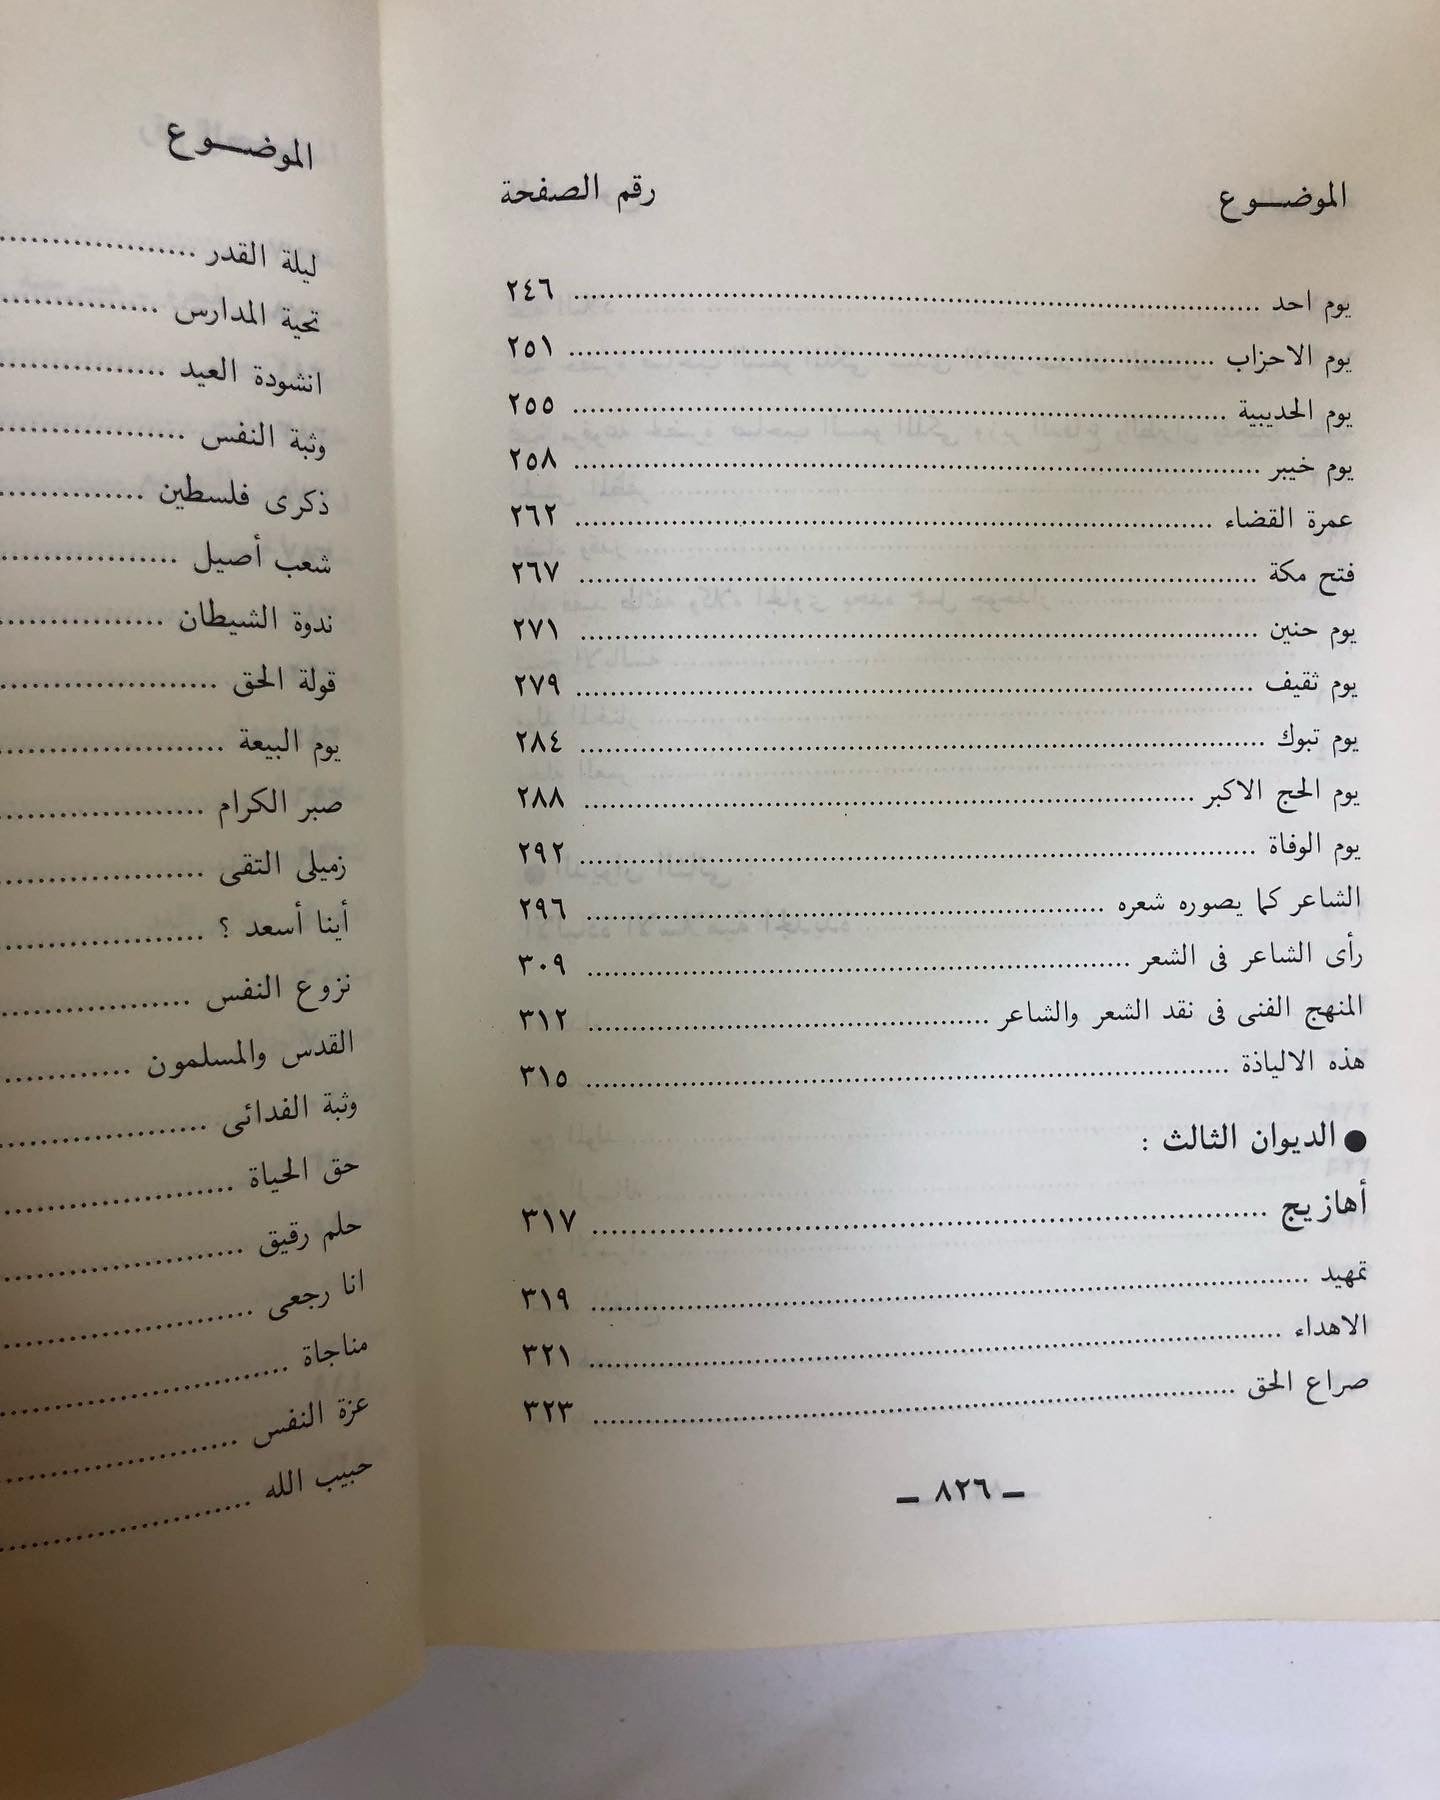 الموضـــوع رقم الصفحة
يوم احد ........ ٢٤٦
يوم الاحزاب ........ ٢٥١
يوم الحديبية ........ ٢٥٥
يوم خيبر ........ ٢٥٨
عمرة القضاء ........ ٢٦٢
فتح مكة ........ ٢٦٧
يوم حنين ........ ٢٧١
يوم ثقيف ........ ٢٧٩
يوم تبوك ........ ٢٨٤
يوم الحج الاكبر ........ ٢٨٨
يوم الوفاة ........ ٢٩٢
الشاعر كما يصوره شعره ........ ٢٩٦
رأى الشاعر فى الشعر ........ ٣٠٩
المنهج الفنى فى نقد الشعر والشاعر ........ ٣١٢
هذه الالياذة ........ ٣١٥
● الديوان الثالث :
أهازيج ........ ٣١٧
تمهيد ........ ٣١٩
الاهداء ........ ٣٢١
صراع الحق ........ ٣٢٣
ـ ٨٢٦ ـ
الموضـــوع
ليلة القدر ........
تحية المدارس ........
انشودة العيد ........
وثبة النفس ........
ذكرى فلسطين ........
شعب أصيل ........
ندوة الشيطان ........
قولة الحق ........
يوم البيعة ........
صبر الكرام ........
زميلى التقى ........
أينا أسعد ؟ ........
نزوع النفس ........
القدس والمسلمون ........
وثبة الفدائى ........
حق الحياة ........
حلم رقيق ........
انا رجعى ........
مناجاة ........
عزة النفس ........
حبيب الله ........